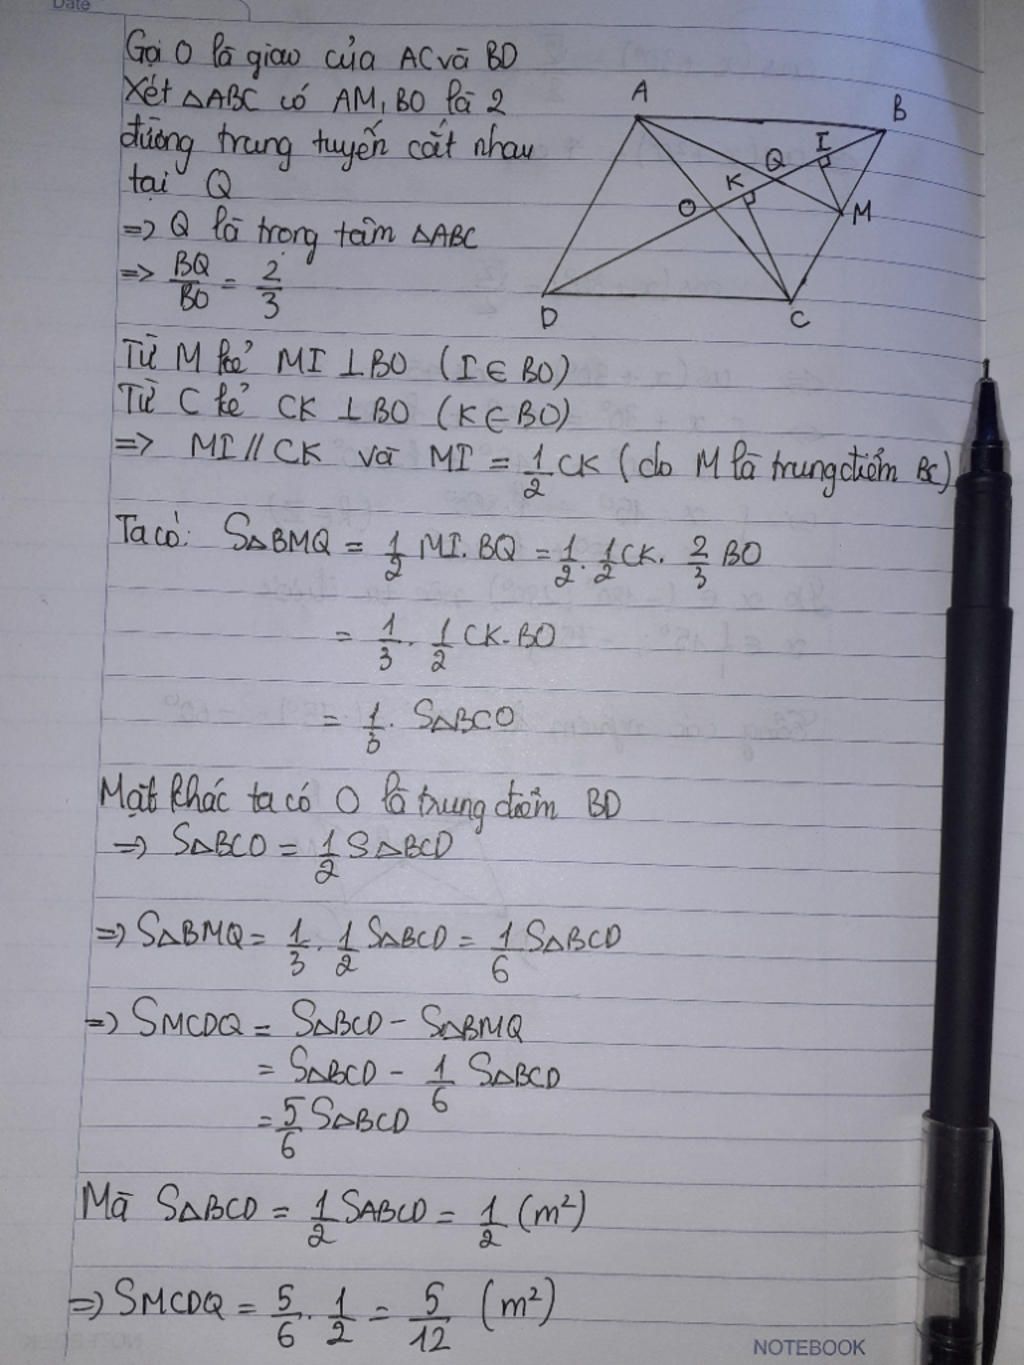 Date
Gọi O là giao của AC và BD
Xét △ABC có AM, BO là 2
đường trung tuyến cắt nhau
tại Q
=> Q là trọng tâm △ABC
=> BQ/BO = 2/3
A
B
I
Q
K
O
M
D
C
Từ M kẻ MI ⊥ BO (I ∈ BO)
Từ C kẻ CK ⊥ BO (K ∈ BO)
=> MI // CK và MI = 1/2 CK (do M là trung điểm BC)
Ta có: S△BMQ = 1/2 MI. BQ = 1/2 . 1/2 CK. 2/3 BO
= 1/3 . 1/2 CK. BO
= 1/3 . S△BCO
Mặt khác ta có O là trung điểm BD
=> S△BCO = 1/2 S△BCD
=> S△BMQ = 1/3 . 1/2 S△BCD = 1/6 S△BCD
=> SMCDQ = S△BCD - S△BMQ
= S△BCD - 1/6 S△BCD
= 5/6 S△BCD
Mà S△BCD = 1/2 SABCD = 1/2 (m²)
=> SMCDQ = 5/6 . 1/2 = 5/12 (m²)
NOTEBOOK